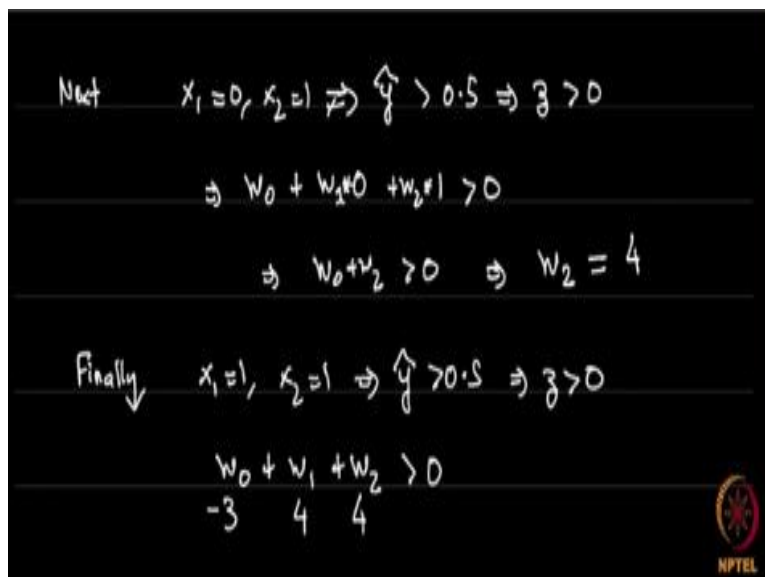 Next x₁=0, x₂=1 ⇒ ŷ > 0.5 ⇒ z > 0
⇒ w₀ + w₁*0 + w₂*1 > 0
⇒ w₀+w₂ > 0 ⇒ w₂ = 4
Finally, x₁=1, x₂=1 ⇒ ŷ >0.5 ⇒ z>0
w₀ + w₁ + w₂ > 0
-3 4 4
NPTEL